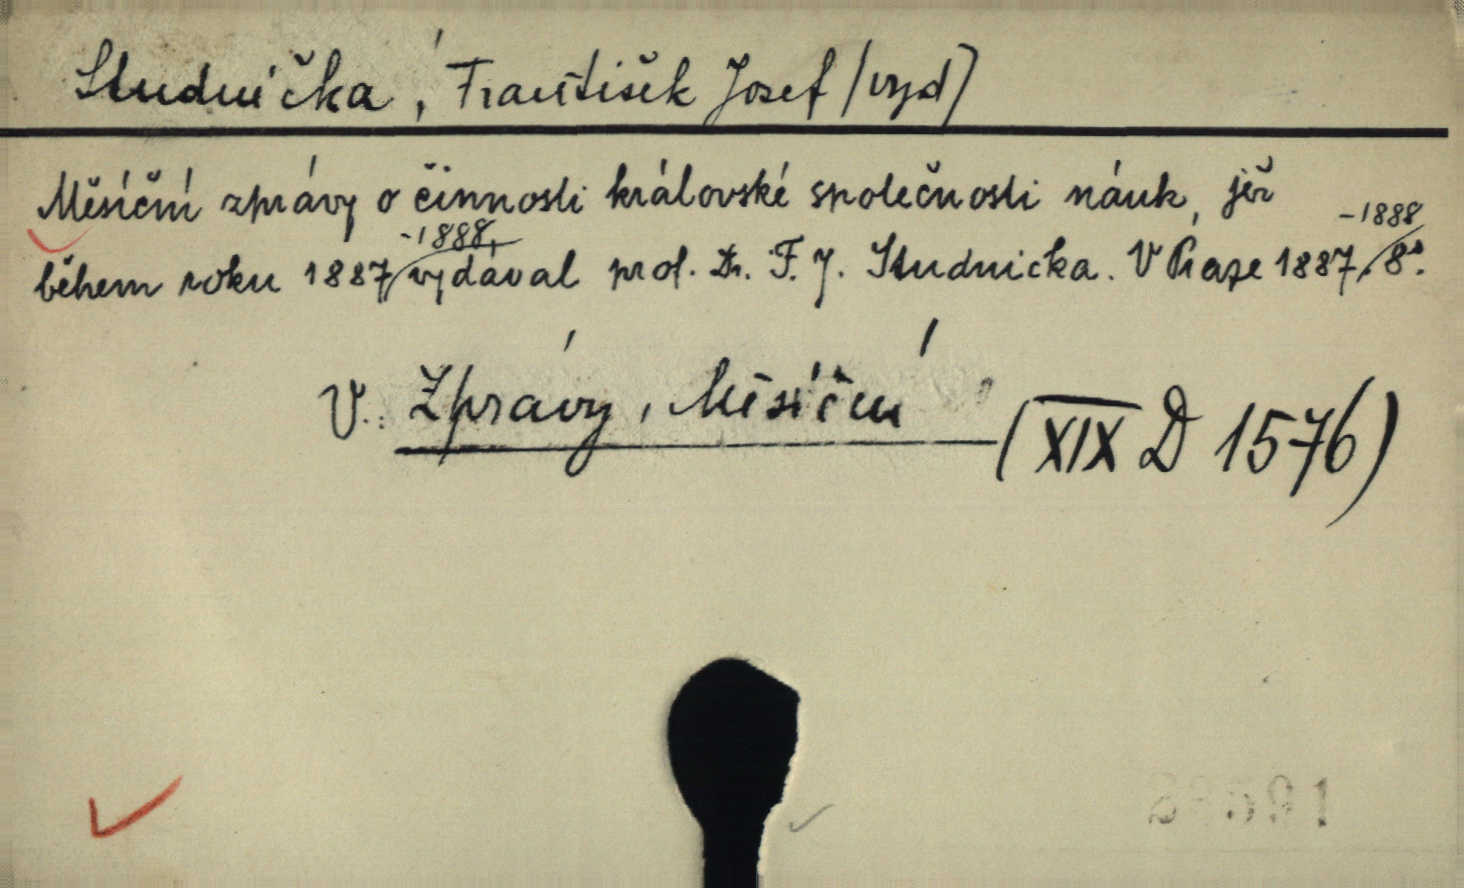 Studnička, František Josef (vyd)
Měsíční zprávy o činnosti královské společnosti náuk, jěž
během roku 1887-1888, vydával prof. Dr. F. J. Studnicka. V Praze 1887-1888. 8°.
V.: Zprávy, Měsíční (XIX D 1576)